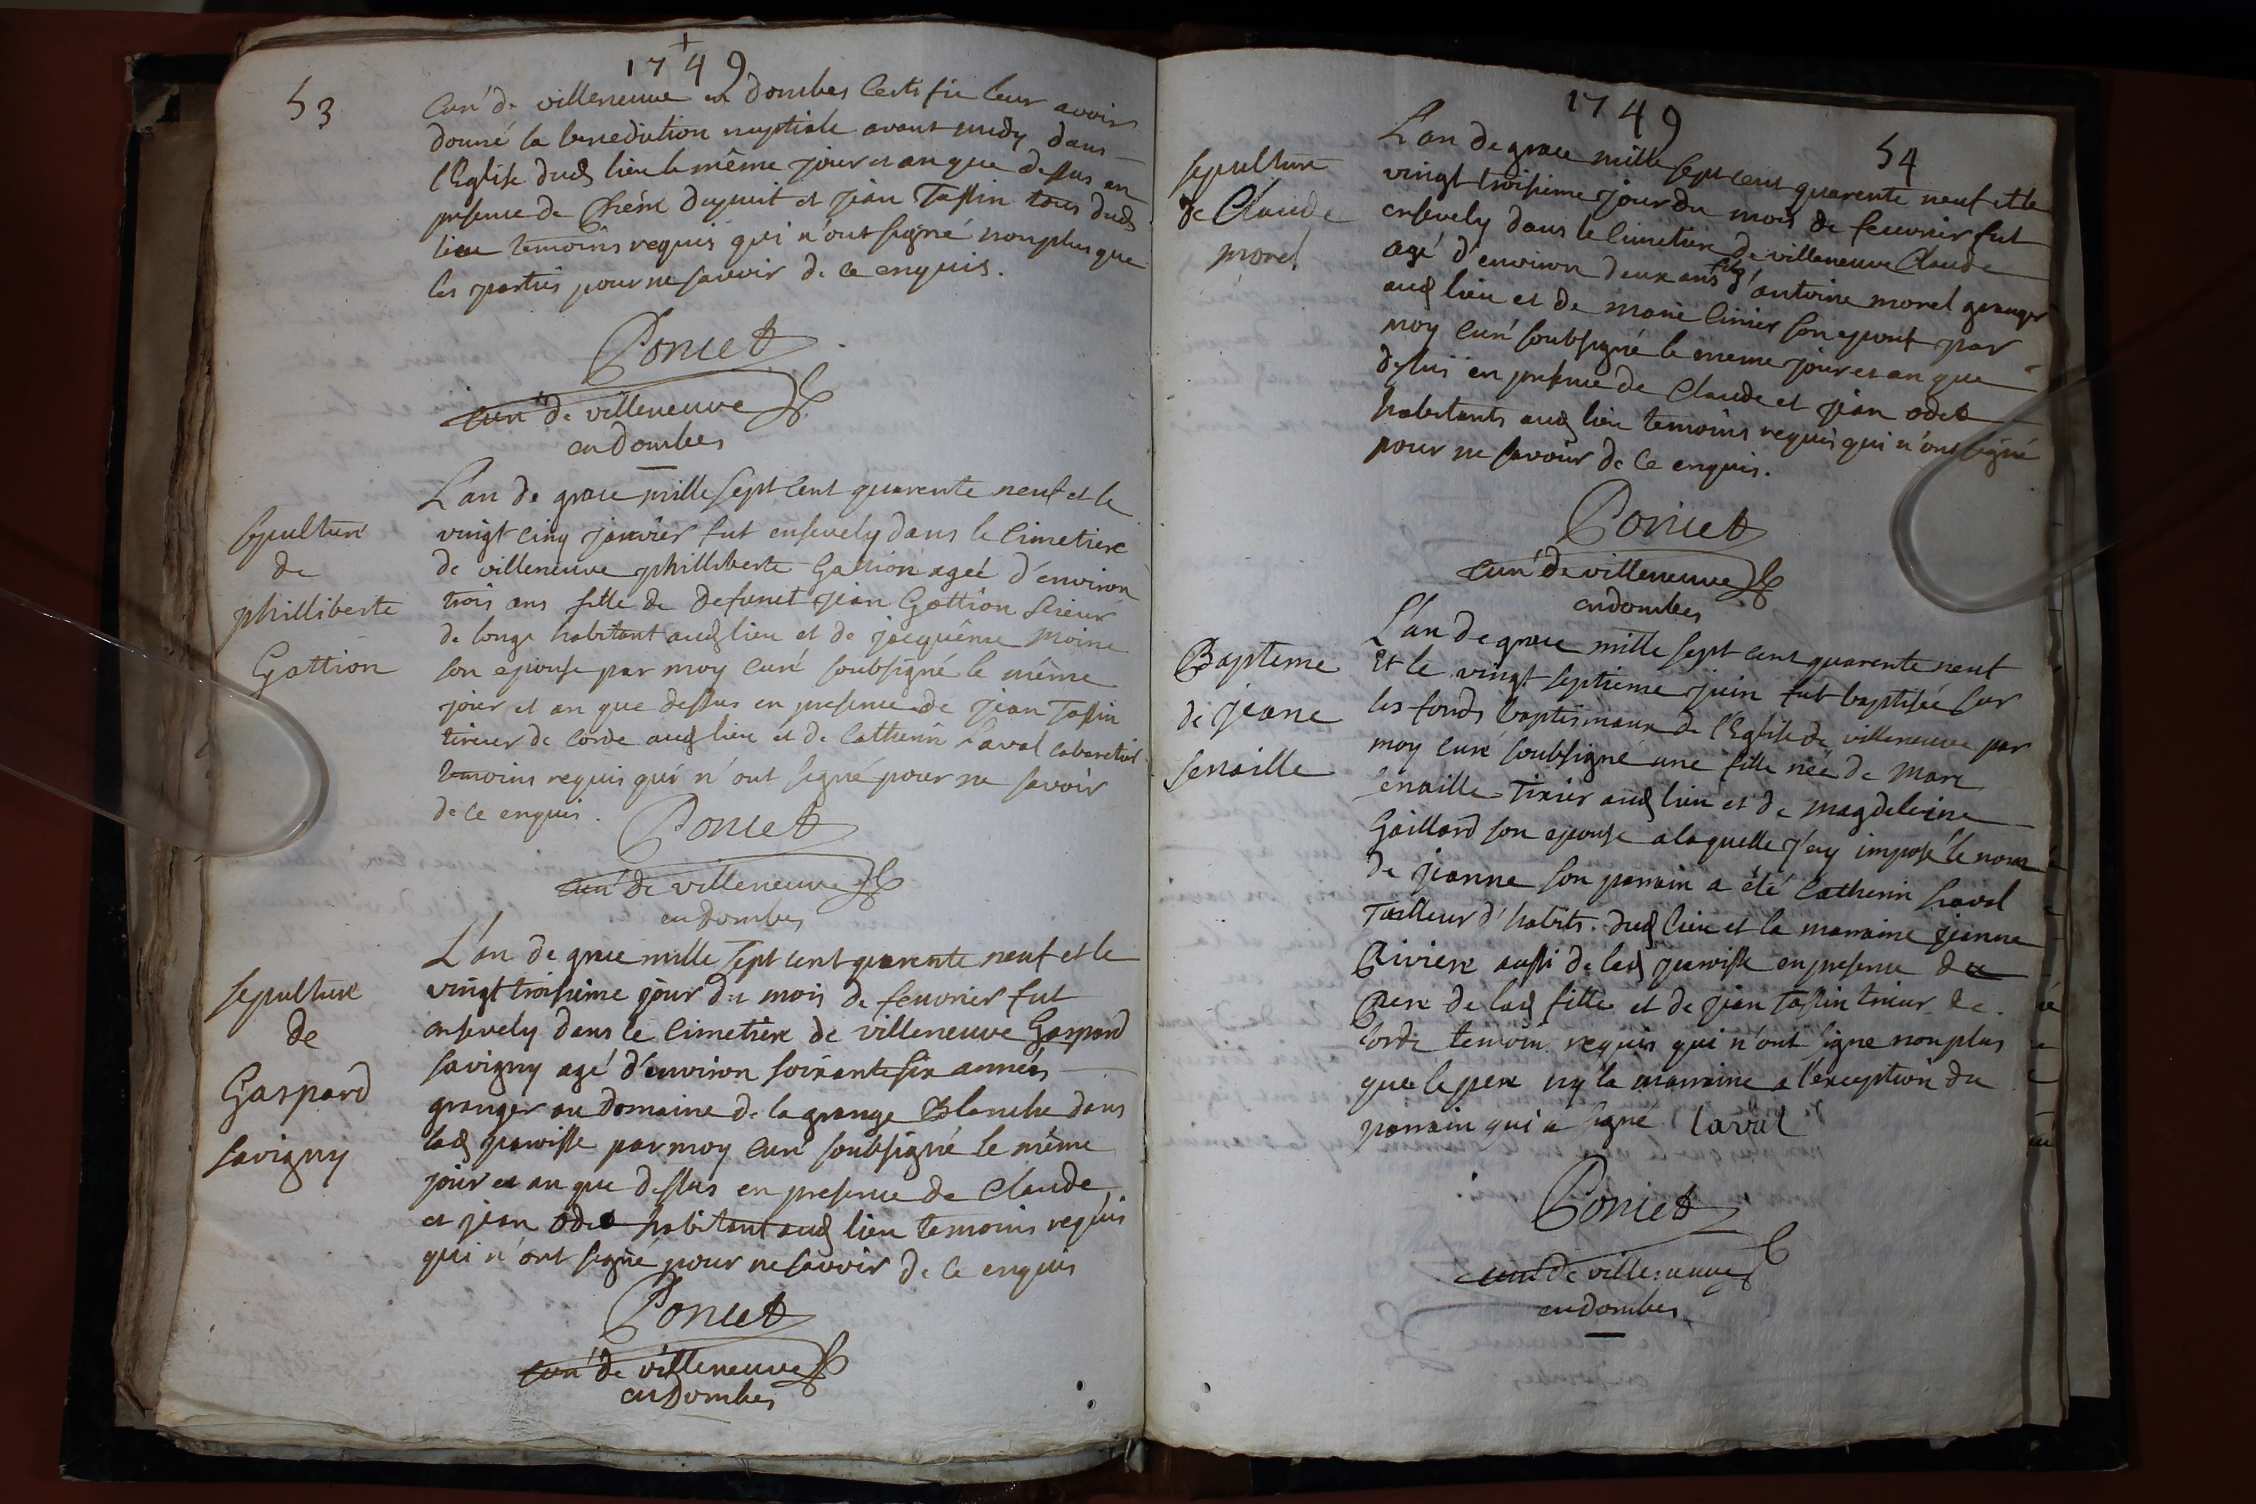 1749
53
Curé de villeneuve en dombes Certifie leur avoir
donné la benediction nuptiale avant midy dans
l'Eglise dud lieu le même jour et an que dessus en
presence de et jean Taffin tous dud
lieu temoins requis qui n'ont signé non plus que
les parties pour ne savoir de ce enquis.
Poncet
curé de villeneuve
en dombes
sepulture
de
philliberte
Gattion
L'an de grace mille sept cent quarente neuf et le
vingt cinq janvier fut ensevely dans le Cimetiere
de villeneuve philliberte Gattion ageé d'environ
trois ans fille de defunct jean Gattion scieur
de longs habitant aud lieu et de jacquême moine
son epouse par moy curé soubsigné le même
jour et an que dessus en presence de jean Taffin
tireur de corde aud lieu et de Catherin Laval cabaretier
temoins requis qui n'ont signé pour ne savoir
de ce enquis.
Poncet
curé de villeneuve
en Dombes
sepulture
de
Gaspard
savigny
L'an de grace mille sept cent quarente neuf et le
vingt troisieme jour du mois de fevvrier fut
ensevely dans le Cimetiere de villeneuve Gaspard
savigny agé d'environ soixante six années
granger au domaine de la grange Blanche dans
lad paroisse par moy curé soubsigné le même
jour et an que dessus en presence de Claude
et jean odet habitant aud lieu temoins requis
qui n'ont signé pour ne savoir de ce enquis
Poncet
curé de villeneuve
en Dombes
1749
54
sepulture
de Claude
morel
L'an de grace mille sept cent quarente neuf et le
vingt troisieme jour du mois de fevvrier fut
ensevely dans le Cimetiere de villeneuve Claude
agé d'environ deux ans fils d'antoine morel granger
aud lieu et de marie son epouse par
moy curé soubsigné le meme jour et an que
dessus en presence de Claude et jean odet
habitants aud lieu temoins requis qui n'ont signé
pour ne savoir de ce enquis.
Poncet
curé de villeneuve
en dombes
Bapteme
de jeane
senaille
L'an de grace mille sept cent quarente neuf
Et le vingt septieme juin fut baptiseé sur
les fonds baptismaux de l'Eglise de villeneuve par
moy curé soubsigné une fille neé de Marc
senaille Tixier aud lieu et de magdeleine
Gaillard son epouse a laquelle j'ay imposé le nom
de jeanne son parrain a été Catherin Laval
Tailleur d'habits dud lieu et la marraine jeanne
Riviere aussi de lad paroisse en presence du
Pere de lad fille et de jean Taffin tireur de
corde temoin requis qui n'ont signe non plus
que le pere ny la marraine a l'exception du
parrain qui a signé Laval
Poncet
curé de villeneuve
en dombes